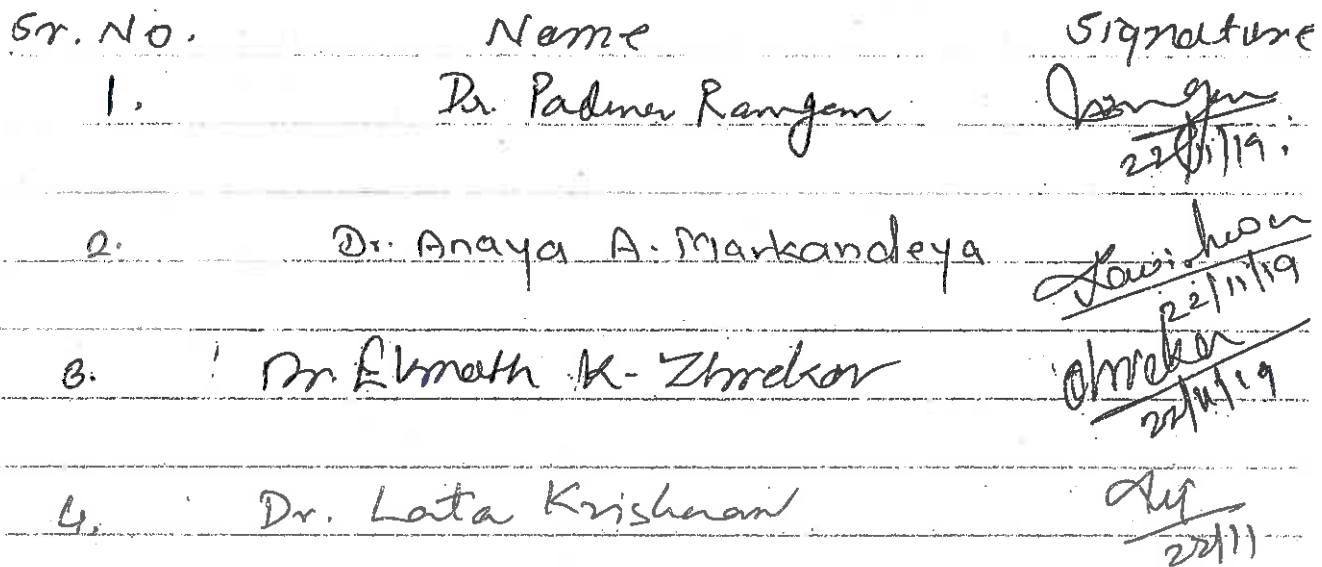 Sr. No. Name Signature
1. Dr. Padma Ramgem
22/11/19.
2. Dr. Anaya A. Markandeya
22/11/19
3. Dr. Eknath K. Zhrekar
22/11/19
4. Dr. Lata Krishnan
22/11